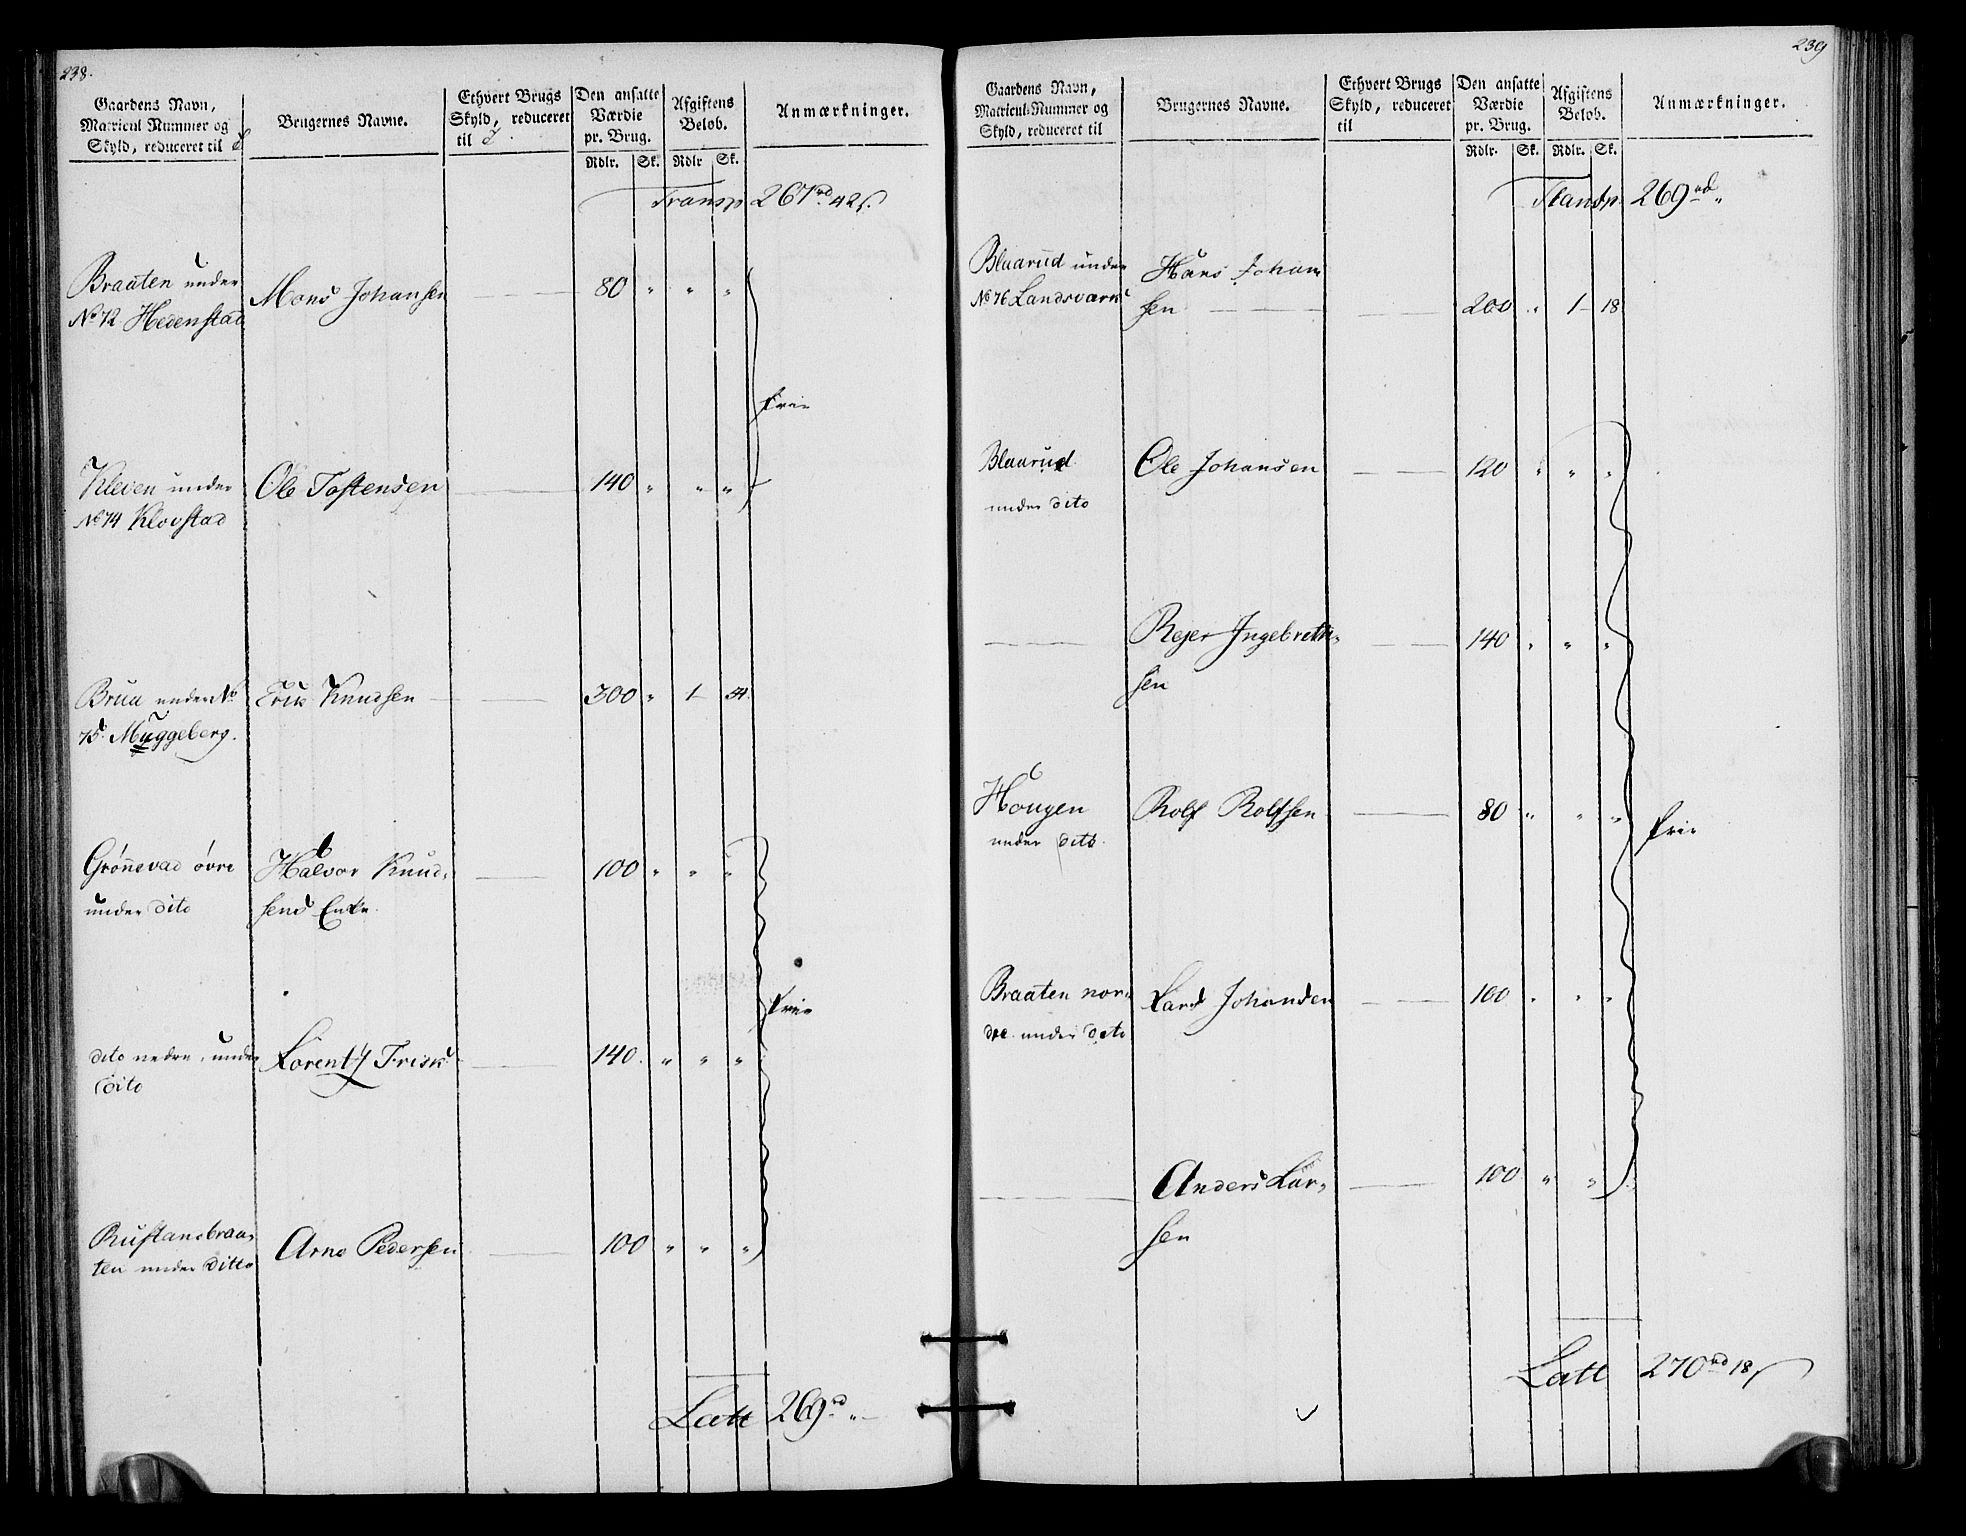 238.
Gaardens Navn, Matricul Nummer og Skyld, reduceret til
Brugernes Navne.
Ethvert Brugs Skyld, reduceret til
Den ansatte Værdie pr. Brug.
Afgiftens Belob.
Anmærkninger.
Rdlr. Sk. Rdlr Sk.
Transp 267 rd 42 s.
Braaten under Mons Johansen 80 " " "
No 72 Hedenstad
Frie
Kleven under Ole Tostensen 140 " " "
No 74 Klovstad
Brua under No Erik Knudsen 300 " 1 54.
75. Muggeberg.
Grønnevad øvre Halvor Knud- 100 " " "
under dito sens Enke
Frie
dito nedre, under Lorentz Frisk 140. " " "
dito
Rustansbraa- Arne Pedersen 100 " " "
ten under ditto
Latt 269 rd "
239
Gaardens Navn, Matricul-Nummer og Skyld, reduceret til
Brugernes Navne.
Ethvert Brugs Skyld, reduceret til
Den ansatte Værdie pr. Brug.
Afgiftens Belob.
Anmærkninger.
Rdlr. Sk. Rdlr. Sk.
Transp. 269 rd "
Blaarud under Hans Johan-
No 76 Landsværk sen 200 " 1 18
Blaarud Ole Johansen 120 " " "
under dito
Rejer Ingebreth- 140 " " "
sen
Hougen Rolf Rolfsen 80 " " "
under dito. Frie
Braaten nor- Lars Johansen 100 " " "
dre under dito
Anders Lar- 100 " "
sen
Latt 270 rd 18 s